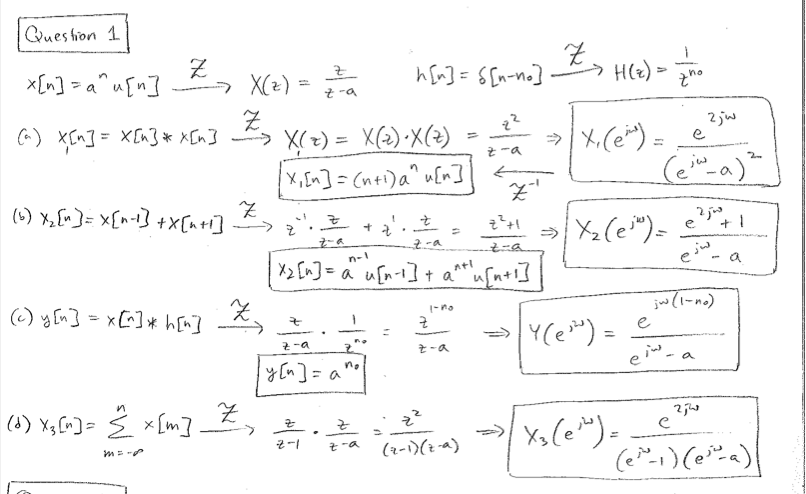 Question 1
x[n] = aⁿu[n] —Z→ X(z) = z/(z-a)    h[n] = δ[n-n₀] —Z→ H(z) = 1/z^(n₀)
(a) x₁[n] = x[n] * x[n] —Z→ X₁(z) = X(z)·X(z) = z²/(z-a) ⇒ X₁(e^(jω)) = e^(2jω)/(e^(jω)-a)²
x₁[n] = (n+1)aⁿu[n] ←Z⁻¹—
(b) x₂[n] = x[n-1] + x[n+1] —Z→ z⁻¹·z/(z-a) + z¹·z/(z-a) = (z²+1)/(z-a) ⇒ X₂(e^(jω)) = (e^(2jω)+1)/(e^(jω)-a)
x₂[n] = a^(n-1)u[n-1] + a^(n+1)u[n+1]
(c) y[n] = x[n] * h[n] —Z→ z/(z-a) · 1/z^(n₀) = z^(1-n₀)/(z-a) ⇒ Y(e^(jω)) = e^(jω(1-n₀))/(e^(jω)-a)
y[n] = a^(n₀)
(d) x₃[n] = Σ_(m=-∞)^n x[m] —Z→ z/(z-1) · z/(z-a) = z²/((z-1)(z-a)) ⇒ X₃(e^(jω)) = e^(2jω)/((e^(jω)-1)(e^(jω)-a))